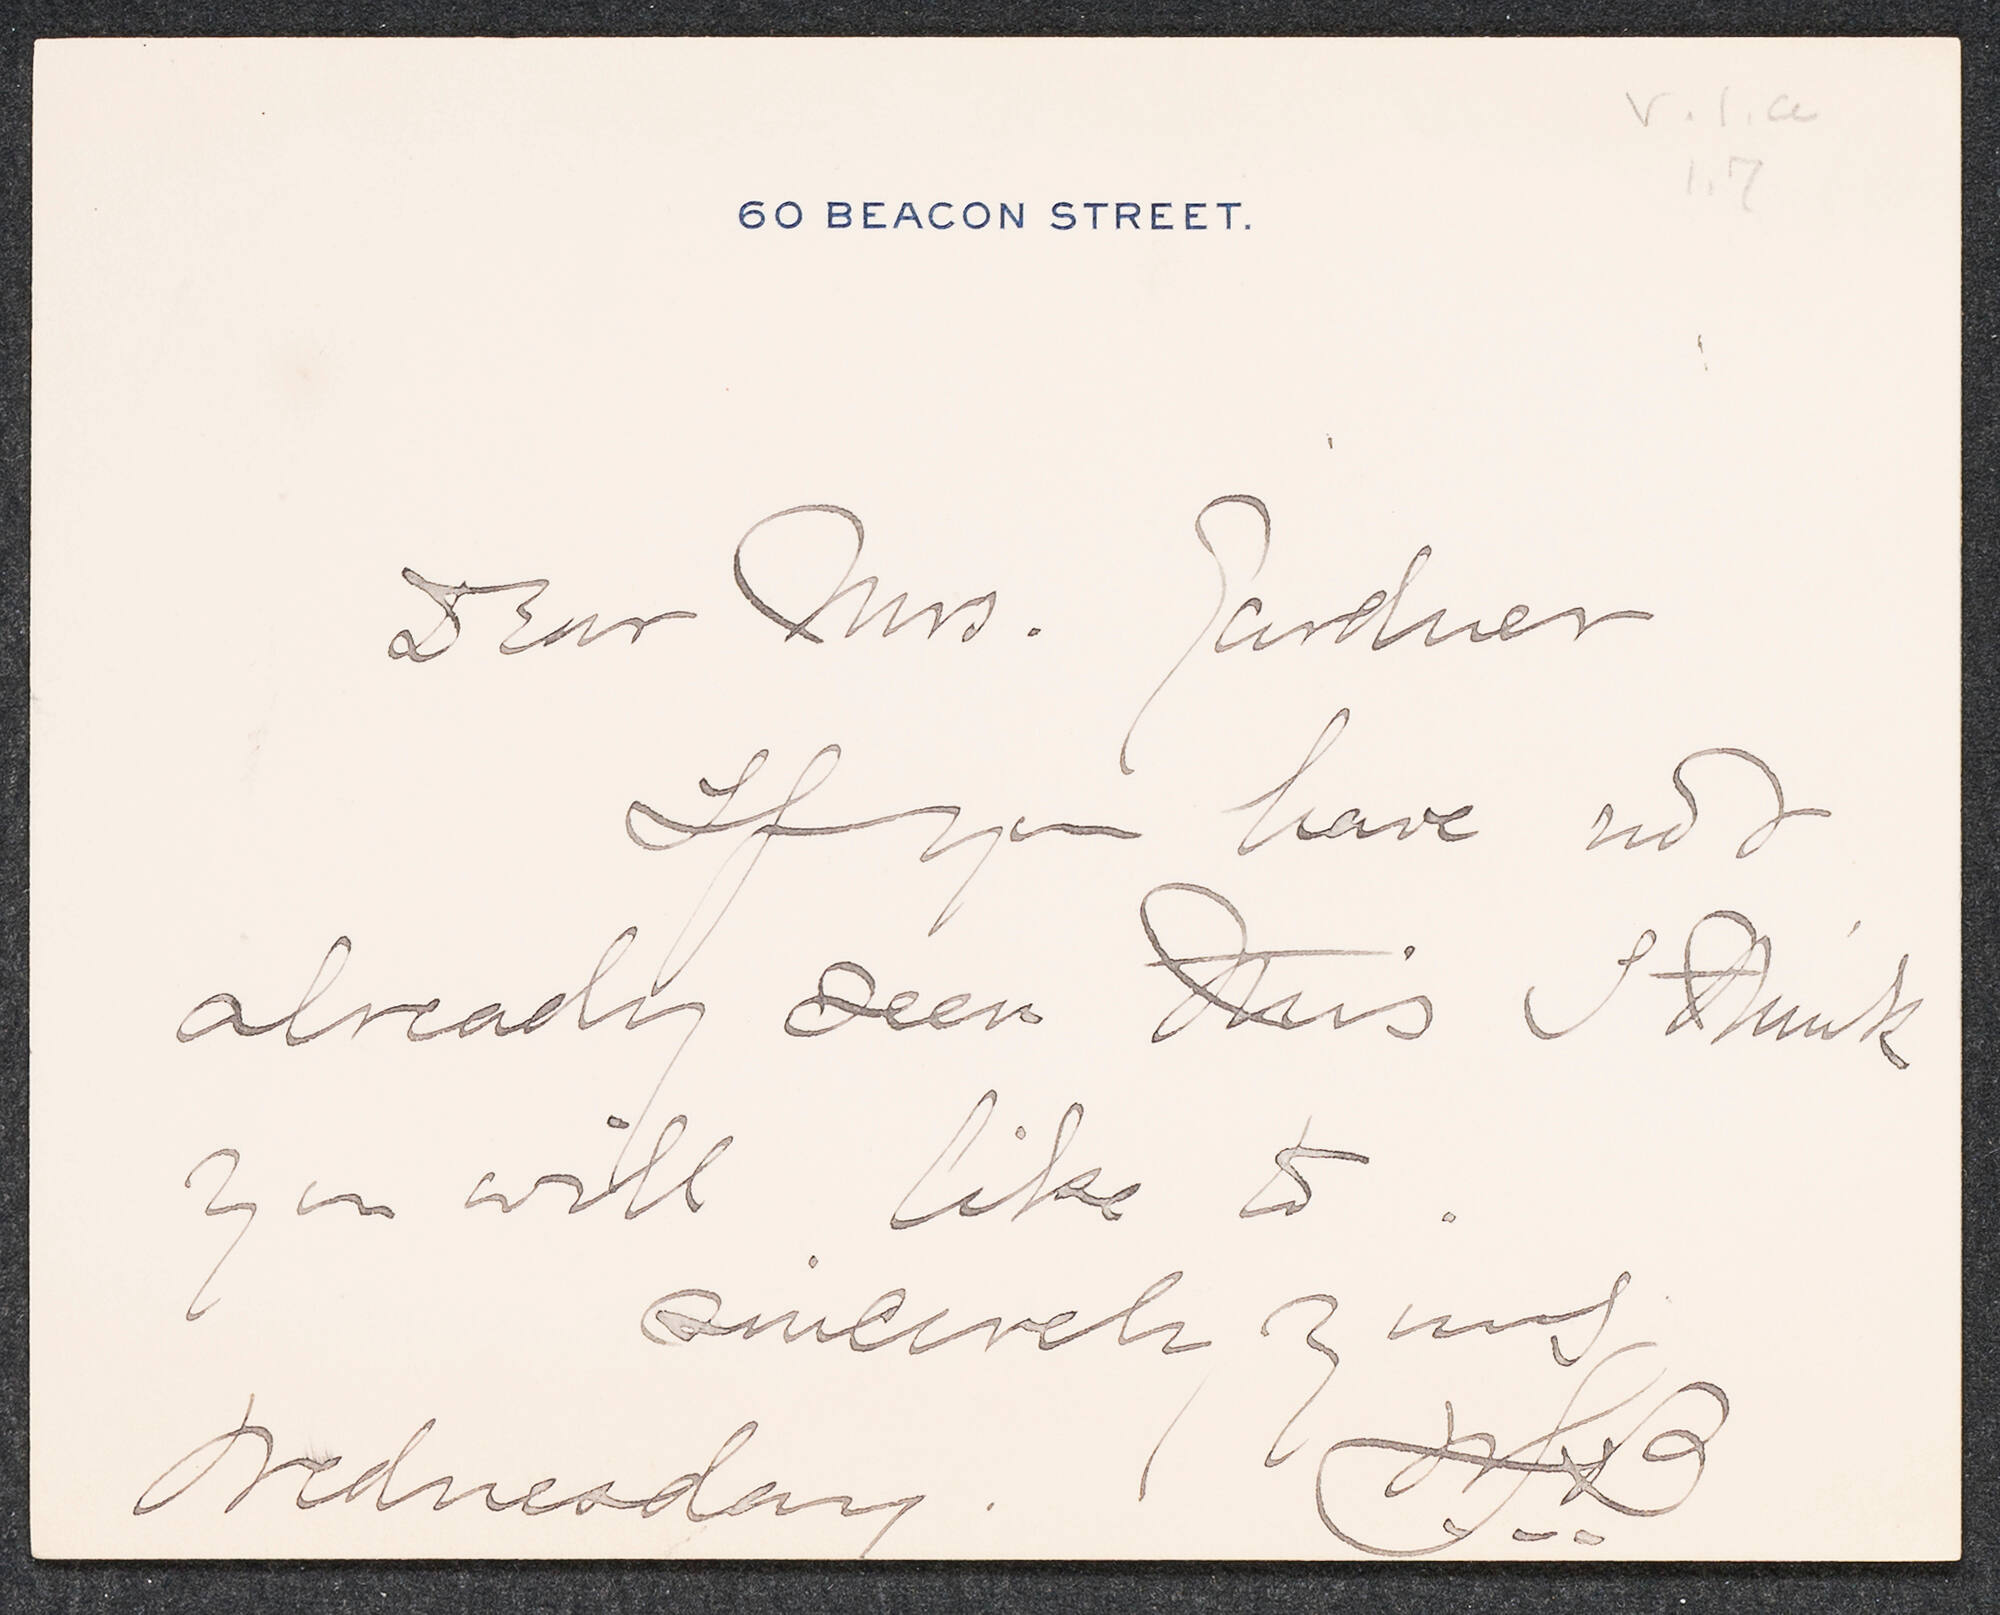 v.1.a
1.7
60 BEACON STREET.
Dear Mrs. Gardner
If you have not
already seen this I think
you will like to.
sincerely yours
Wednesday.